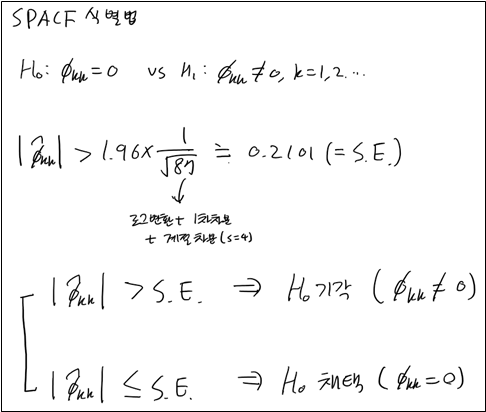 SPACF 식별법
H₀: ϕₖₖ = 0 vs H₁: ϕₖₖ ≠ 0, k=1,2...
|ϕ̂ₖₖ| > 1.96 × 1/√87 ≒ 0.2101 (= S.E.)
로그변환 + 1차차분
+ 계절차분 (s=4)
|ϕ̂ₖₖ| > S.E. ⇒ H₀ 기각 (ϕₖₖ ≠ 0)
|ϕ̂ₖₖ| ≤ S.E. ⇒ H₀ 채택 (ϕₖₖ = 0)